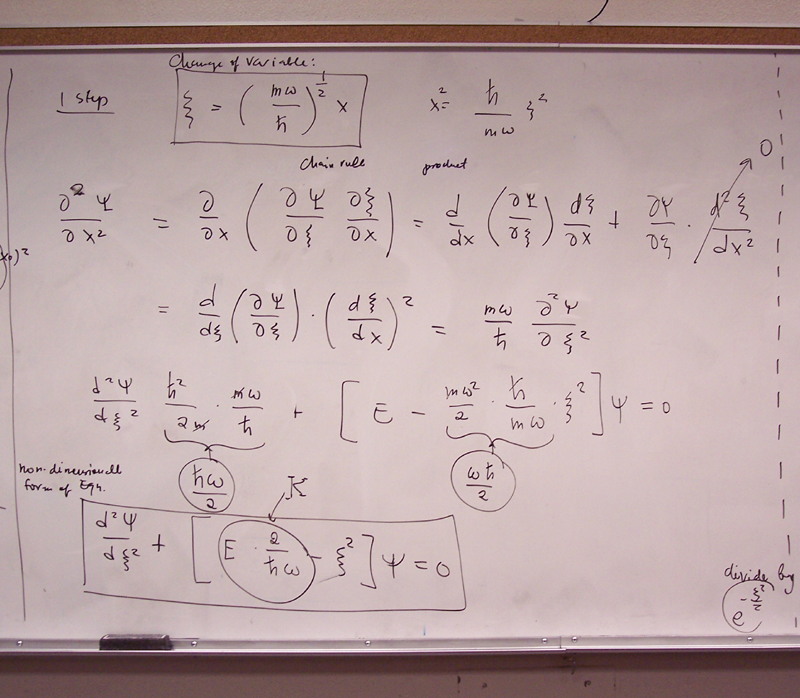 Change of variable:
1 step ξ = (mω/ħ)^(1/2) x x² = ħ/mω ξ²
chain rule product
∂²Ψ/∂x² = ∂/∂x (∂Ψ/∂ξ ∂ξ/∂x) = d/dx (∂Ψ/∂ξ) dξ/∂x + ∂Ψ/∂ξ · d²ξ/dx² → 0
)²
= d/dξ (∂Ψ/∂ξ) · (dξ/dx)² = mω/ħ ∂²Ψ/∂ξ²
d²Ψ/dξ² ħ²/2m · mω/ħ + [E − mω²/2 · ħ/mω · ξ²] Ψ = 0
ħω/2 ωħ/2
non-dimensionall
form of Eqn.
K
d²Ψ/dξ² + [E · 2/ħω − ξ²] Ψ = 0
divide by
e^(-ξ²/2)